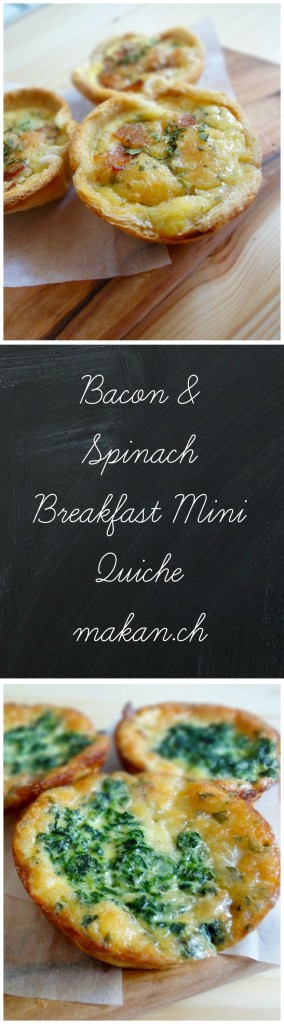 Bacon &
Spinach
Breakfast Mini
Quiche
makan.ch